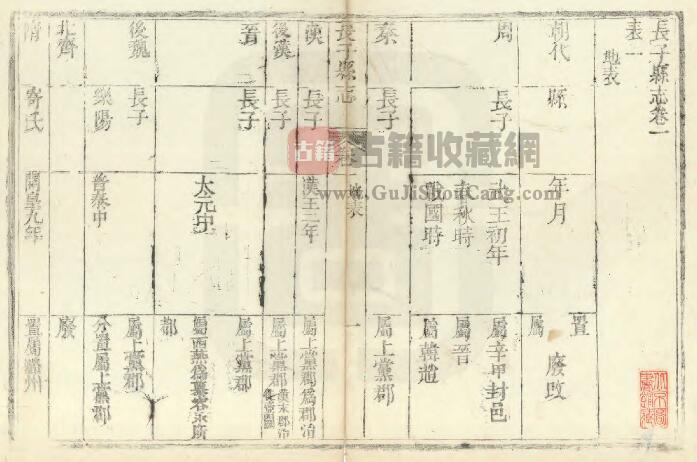 長子縣志卷一
表一
地表
朝代 縣 年月 置屬 廢改
周 長子 武王初年 屬辛甲封邑
春秋時 屬晉
戰國時 屬韓趙
秦 長子 屬上黨郡
長子縣志 卷一 地表 一
漢 長子 漢王二年 屬上黨郡為郡治
後漢 長子 屬上黨郡
晉 長子 屬上黨郡
太元中 屬西燕為慕容永所都
後魏 長子 屬上黨郡
樂陽 普泰中 分置屬上黨郡
北齊 廢
隋 寄氏 開皇九年 置屬潞州
古籍 古籍收藏網
www.GuJiShouCang.com